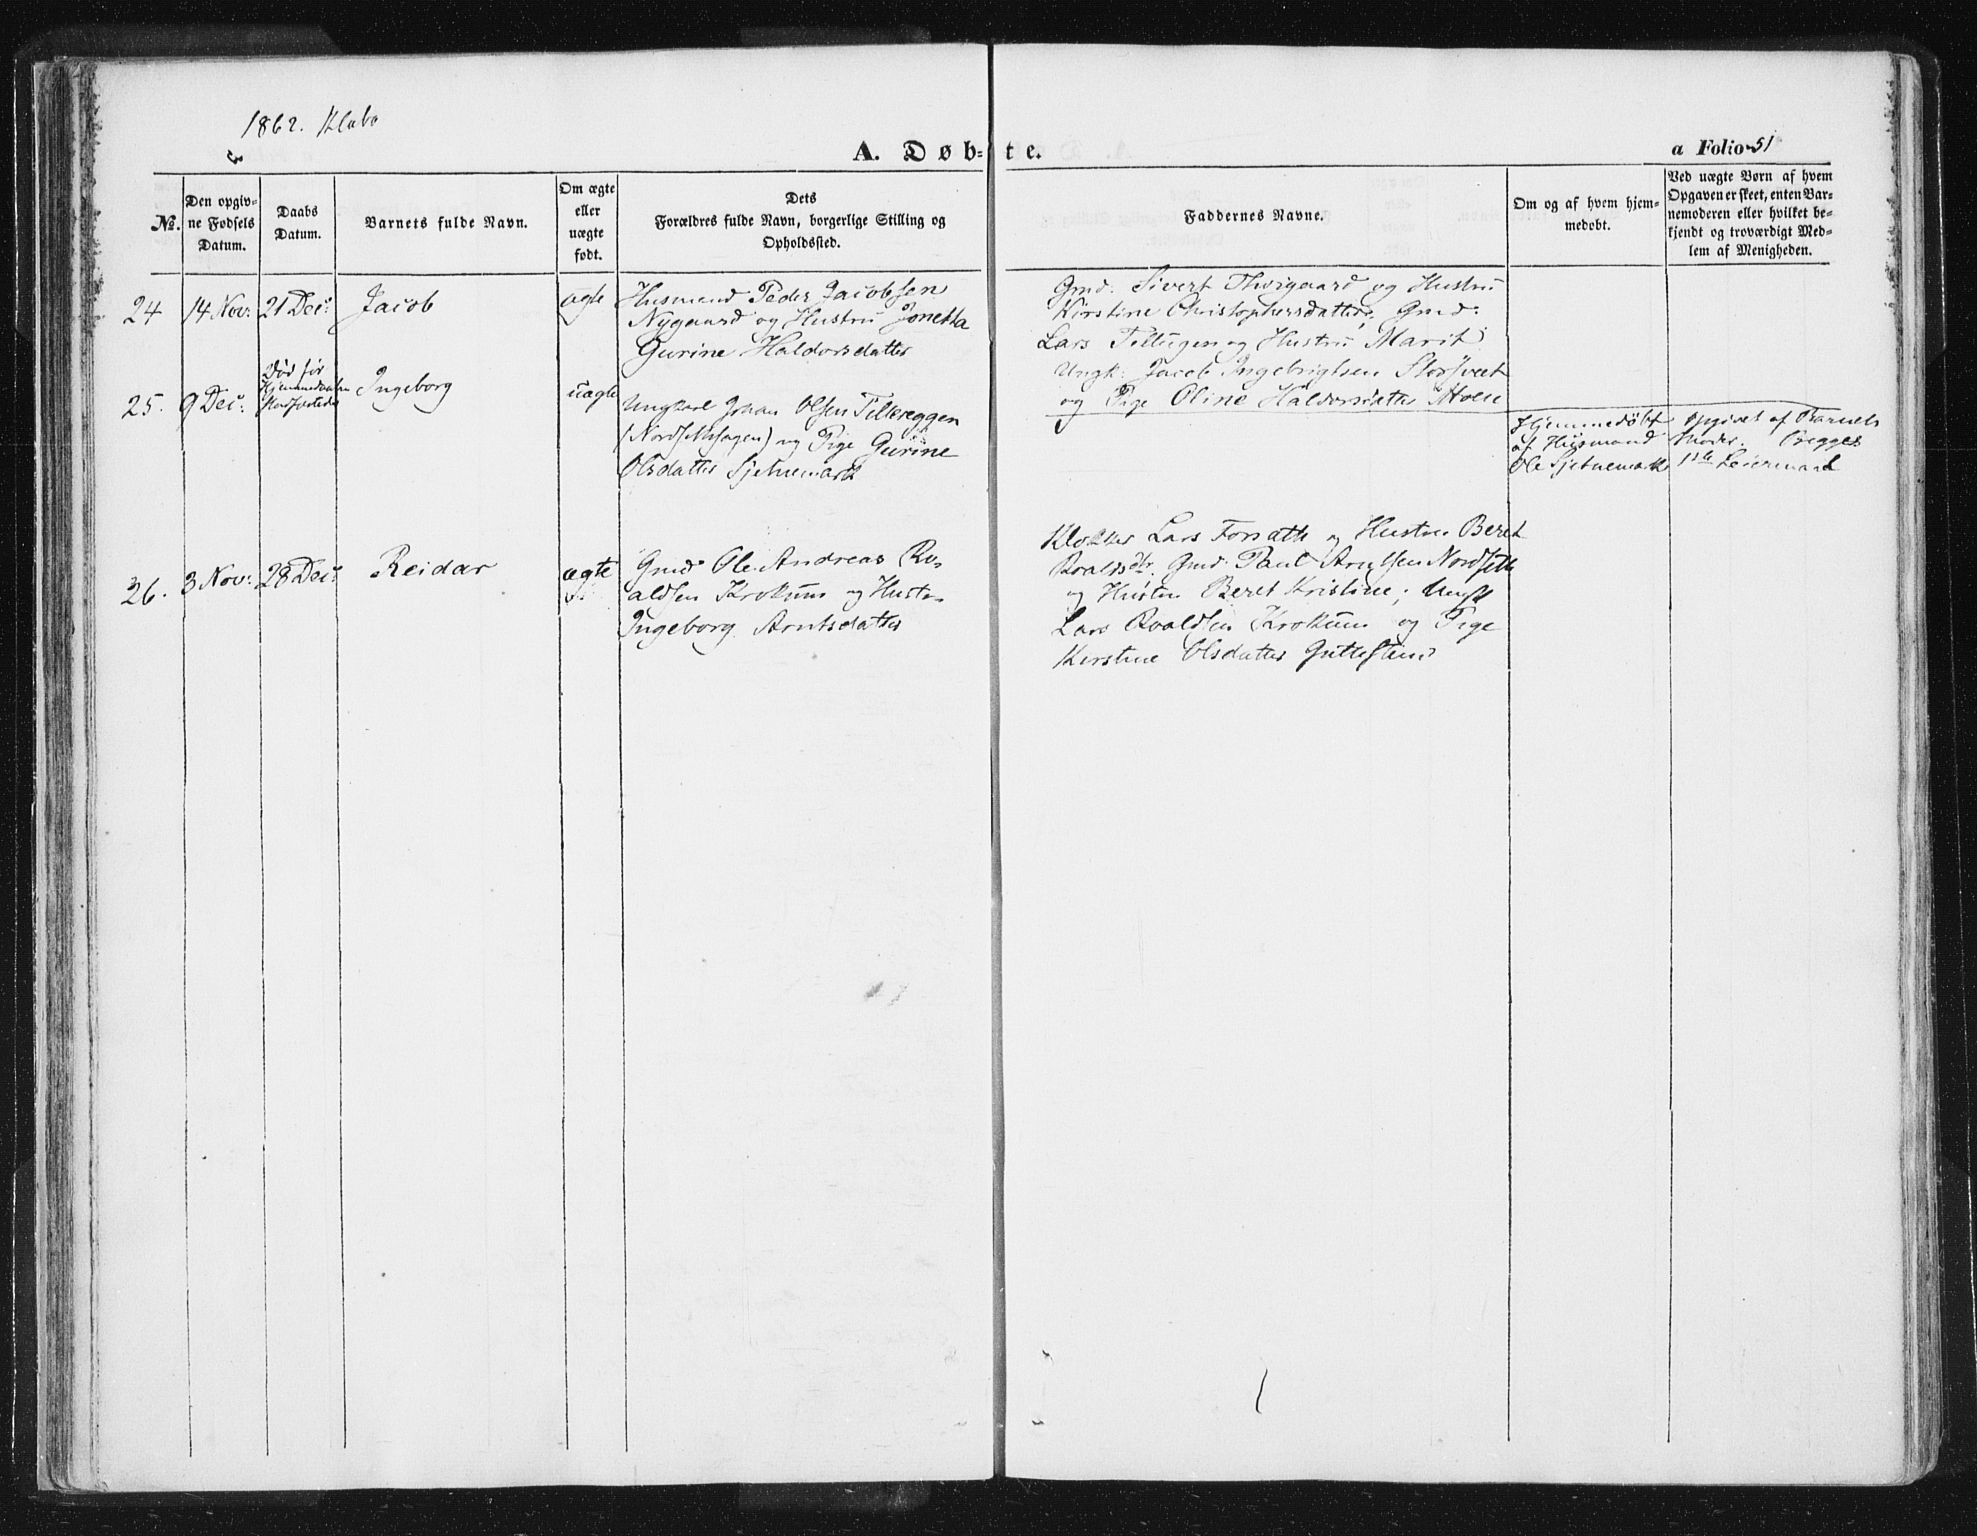 1862. Klæbo
A. Døb-te.
a Folio 51
No.
Den opgiv-
ne Fødsels
Datum.
Daabs
Datum.
Barnets fulde Navn.
Om ægte
eller
uægte
født.
Dets
Forældres fulde Navn, borgerlige Stilling og
Opholdssted.
Faddernes Navne.
Om og af hvem hjem-
medøbt.
Ved uægte Børn af hvem
Opgaven er skeet, enten Bar-
nemoderen eller hvilket be-
kjendt og troværdigt Med-
lem af Menigheden.
24
14 Nov:
21 Dec:
Jacob
ægte
Husmand Peder Jacobsen
Nygaard og Hustru Jonetta
Gurine Haldorsdatter
Gmd: Sivert og Hustru
Kirstine Christophersdatter; Gmd:
Lars og Hustru Marit
Ungk: Jacob Ingebrigtsen
og Pige Oline Haldorsdatter Moen
25.
9 Dec:
Død før
Ingeborg
uægte
Ungkarl Johan Olsen Tillereggen
(Nordsethhagen) og Pige Gurine
Olsdatter Sjetnemark
Hjemmedøbt
af Husmand
Ole Sjetnemark
Opgivet af Barnets
Moder. Begges
1ste Leiermaal
26.
3 Nov:
28 Dec:
Reidar
ægte
Gmd Ole Andreas Ro-
aldsen Krokum og Hustru
Ingeborg Arntsdatter
Klokker Lars Forsæth og Hustru Beret
Roaldsdtr. Gmd: Paul Arntsen Nordseth
og Hustru Beret Kristine; Ungk
Lars Roaldsen Krokum og Pige
Kirstine Olsdatter